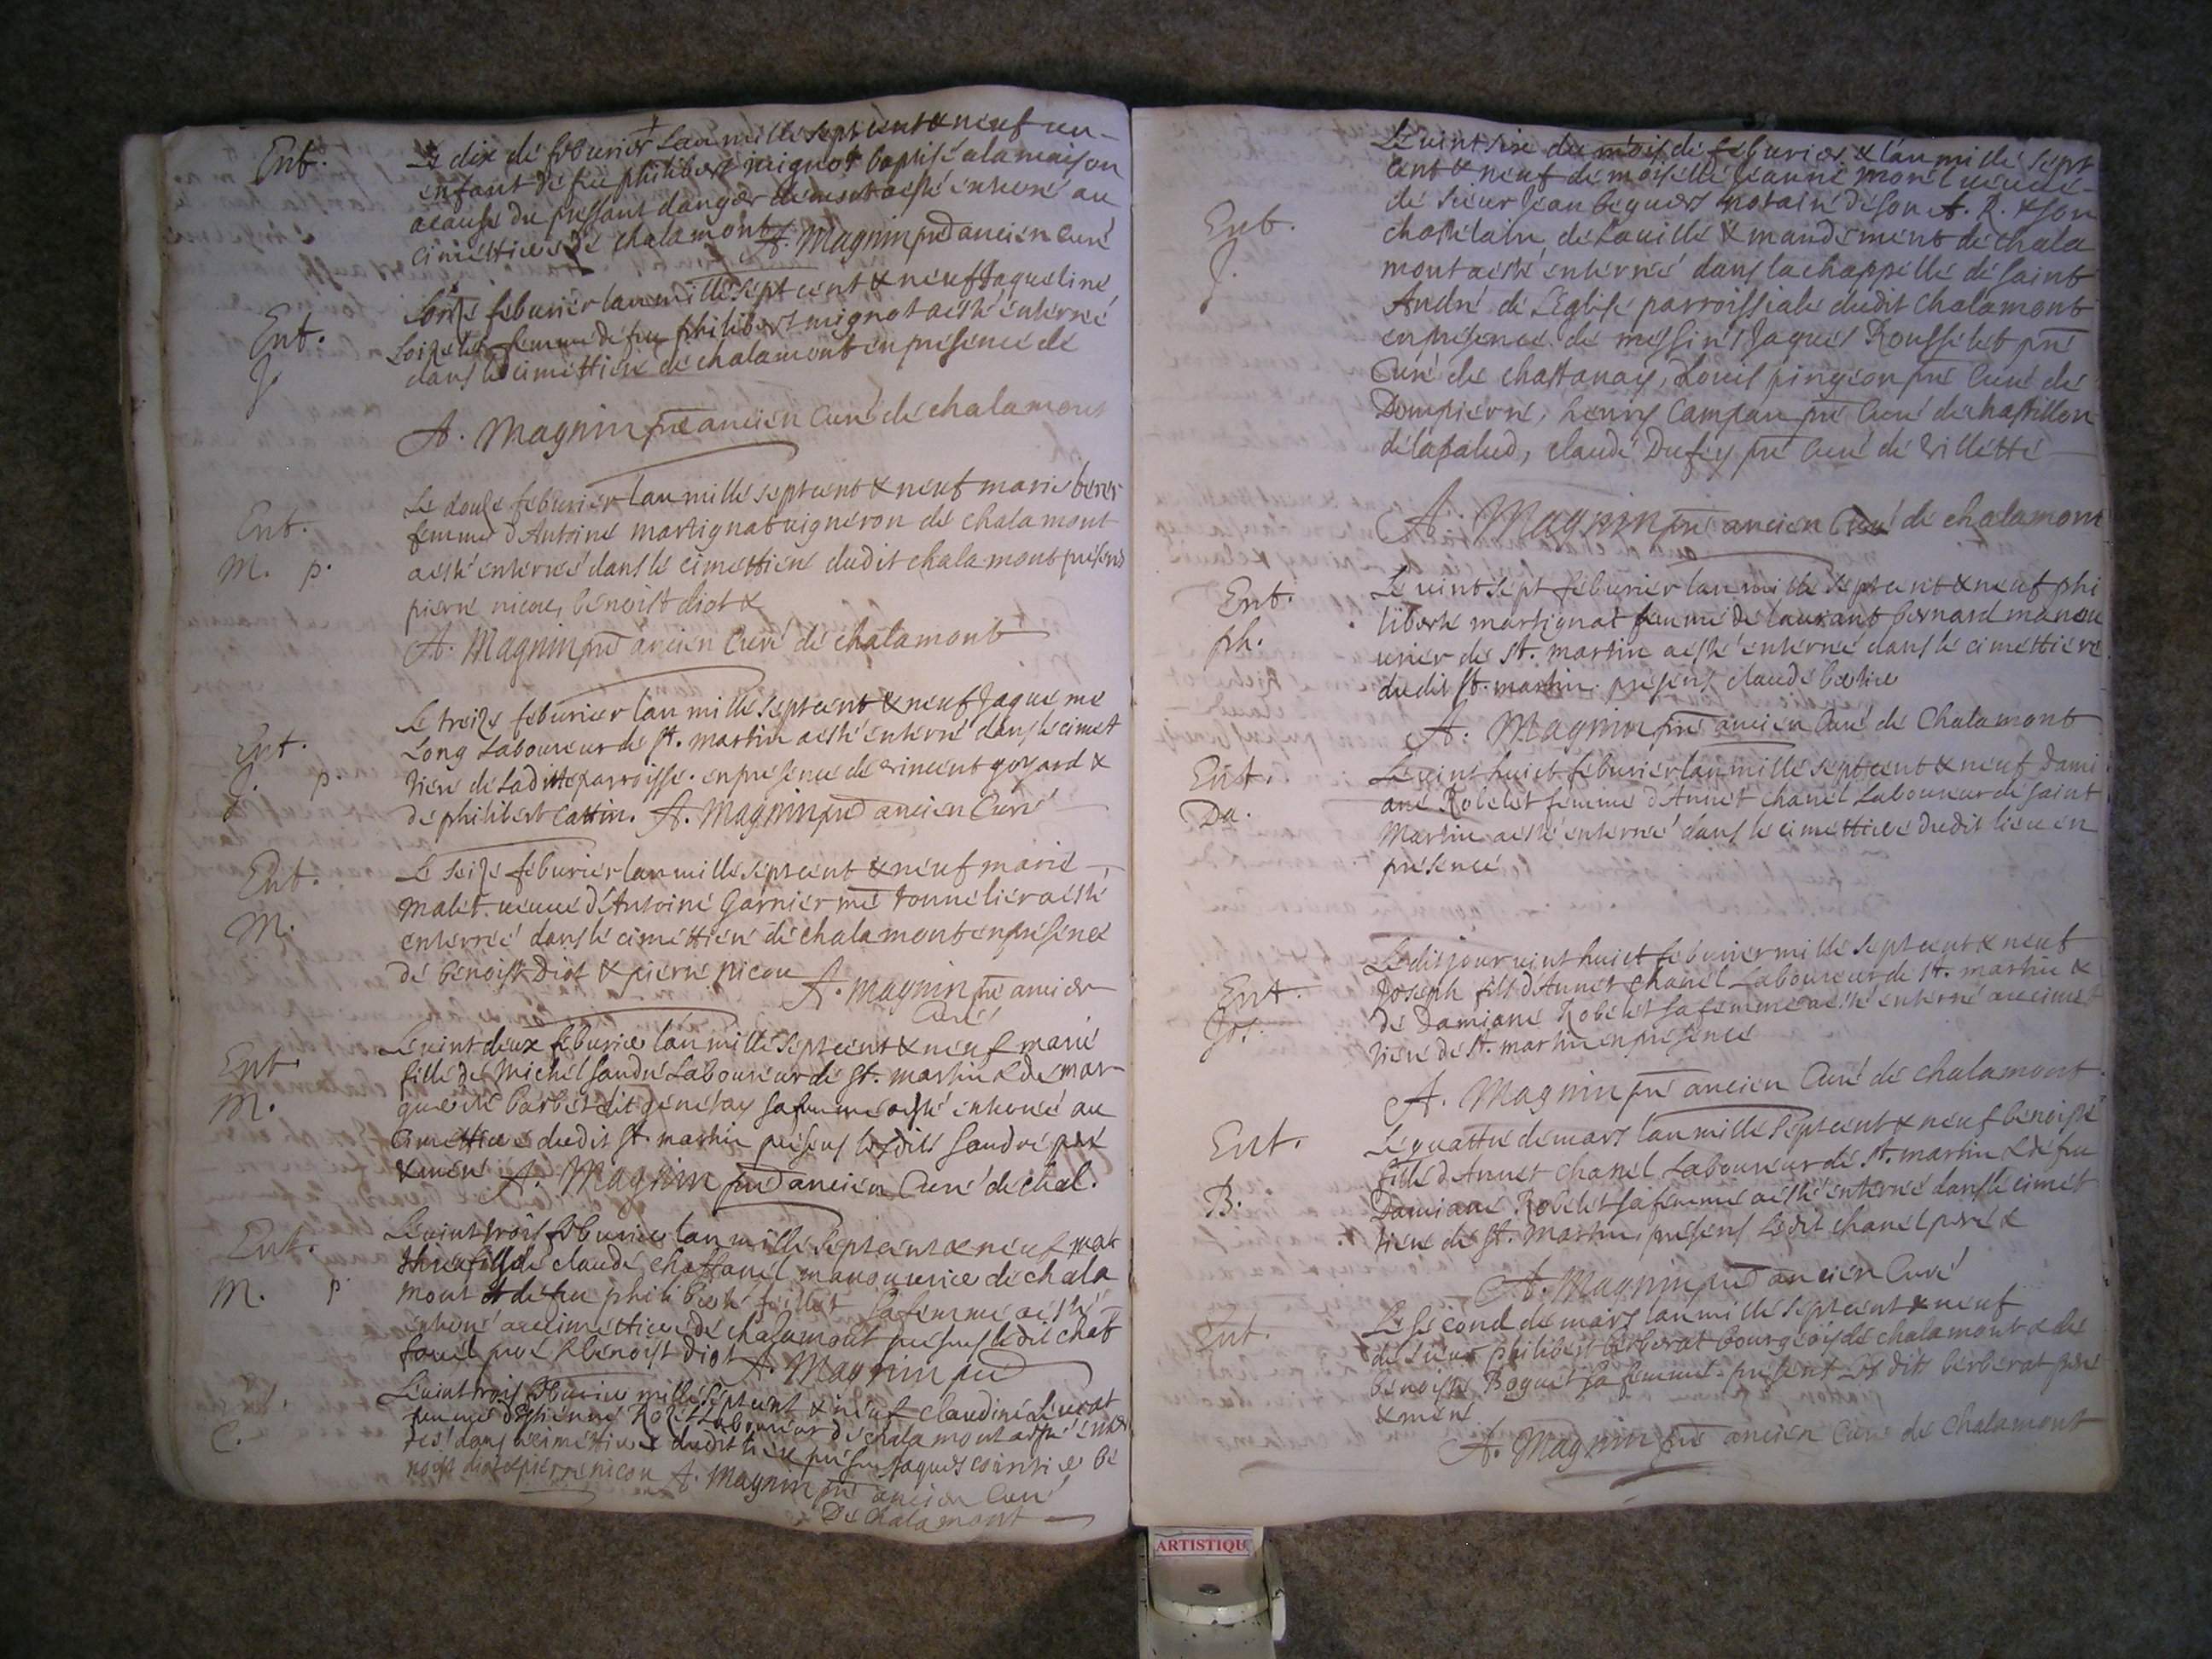 Ent.
Le dix de feburier lan mille sept cent & neuf un
enfant de feu philibert mignot baptisé ala maison
acause du pressant danger de mort a esté enterré au
cimettiere de chalamont A. Magnin pre ancien Curé
Ent.
J.
Lonze feburier lan mille sept cent & neuf Jaqueline
Loizelet femme de feu philibert mignot a esté enterreé
dans le cimettiere de chalamont en presence de
A. Magnin pre ancien Curé de chalamont
Ent.
M. p.
Le douze feburier lan mille sept cent & neuf marie
femme d'Antoine martignat uigneron de chalamont
a esté enterreé dans le cimettiere dudit chalamont presens
pierre nicou, benoist diot &
A. Magnin pre ancien Curé de chalamont
Ent.
J. p.
Le treize feburier lan mille sept cent & neuf Jaqueme
Long Laboureur de st. martin a esté enterré dans le cimet
tiere de Laditte parroisse en presence de vincent goyard &
de philibert Cattin. A. Magnin pre ancien Curé
Ent.
M.
Le seize feburier lan mille sept cent & neuf marie
Malet ueuue d'Antoine Garnier me tonnelier a esté
enterreé dans le cimettiere de chalamont en presence
de benoist Diot & pierre nicou A. Magnin pre ancien
Curé
Ent
M.
Le uint deux feburier lan mille sept cent & neuf marie
fille de Michel sandre Laboureur de st. martin & de mar
guerite barbet dit genetay sa femme a esté enterreé au
Cimettiere dudit st. martin presens lesdits sandre pere
& mere A. Magnin pre ancien Curé de chal.
Ent.
M. p
Le uint trois feburier lan mille sept cent & neuf mat
thieu fils de claude chastanel manouurier de chala
mont & de feu philiberte sa femme a esté
enterré au cimettiere de chalamont presens ledit chas
tanel pere & benoist diot A. Magnin pre
Ent.
C.
Le uint trois feburier mille sept cent & neuf claudine
femme d'Estienne Laboureur de chalamont a esté enter
reé dans le cimettiere dudit lieu presens Jaques be
noist diot & pierre nicou A. Magnin pre ancien Curé
De chalamont
Le uint six du mois de feburier & lan mille sept
cent & neuf demoiselle Jeanne morel ueuue
Ent.
J.
de sieur Jean beguet notaire de son A. R. & son
chastelain de Lauille & mandement de chala
mont a esté enterreé dans la chappelle de saint
André de l'Eglise parroissiale dudit chalamont
en presence de messires Jaques Rousselet pre
Curé de chastanay, Louis pingeon pre Curé de
Dompierre, henry Campan pre Curé de chastillon
de lapalud, claude Dufey pre Curé de villette
A. Magnin pre ancien Curé de chalamont
Ent.
ph.
Le uint sept feburier lan mille sept cent & neuf phi
liberte martignat femme de laurant bernard manou
urier de st. martin a esté enterreé dans le cimettiere
dudit st. martin. presens claude
A. Magnin pre ancien Curé de Chalamont
Ent.
Da.
Le uint huict feburier lan mille sept cent & neuf Dami
ane Robelet femme d'Annet chanel Laboureur de saint
Martin a esté enterreé dans le cimettiere dudit lieu en
presence
Ent.
Jos.
Ledit jour uint huict feburier mille sept cent & neuf
Joseph fils d'Annet chanel Laboureur de st. martin &
de Damiane Robelet sa femme a esté enterré au cimet
tiere de st. martin en presence
A. Magnin pre ancien Curé de chalamont
Ent.
B.
Le quattre de mars lan mille sept cent & neuf benoiste
fille d'Annet chanel Laboureur de st. martin & de feu
Damiane Robelet sa femme a esté enterreé dans le cimet
tiere de st. Martin, presens Ledit chanel pere &
A. Magnin pre ancien Curé
Ent.
Le second de mars lan mille sept cent & neuf
de sieur philibert berberat bourgeois de chalamont & de
benoiste Boguet sa femme. present Lesdits berberat pere
& mere
A. Magnin pre ancien Curé de Chalamont
ARTISTIQU